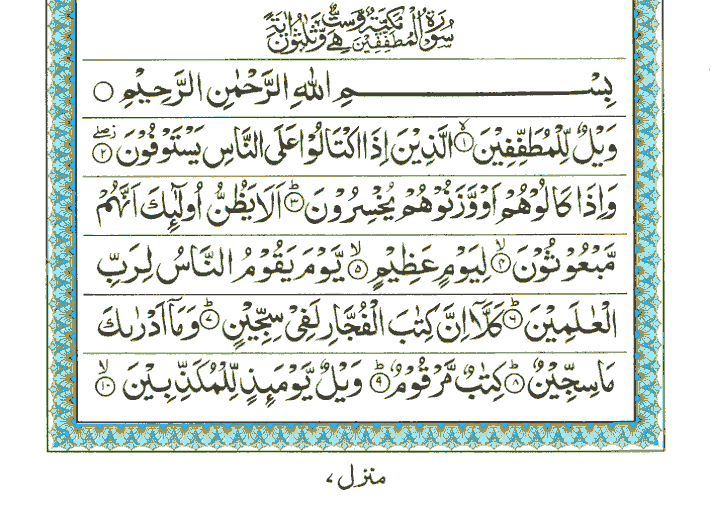 سُوْرَةُ الْمُطَفِّفِيْنَ مَكِّيَّةٌ وَّهِيَ سِتٌّ وَّثَلٰثُوْنَ اٰيَةً
بِسْمِ اللهِ الرَّحْمٰنِ الرَّحِيْمِ ○
وَيْلٌ لِّلْمُطَفِّفِيْنَ ۙ﴿۱﴾ الَّذِيْنَ اِذَا اكْتَالُوْا عَلَى النَّاسِ يَسْتَوْفُوْنَ ﴿۲﴾
وَاِذَا كَالُوْهُمْ اَوْ وَّزَنُوْهُمْ يُخْسِرُوْنَ ؕ﴿۳﴾ اَلَا يَظُنُّ اُولٰٓئِكَ اَنَّهُمْ
مَّبْعُوْثُوْنَ ۙ﴿۴﴾ لِيَوْمٍ عَظِيْمٍ ۙ﴿۵﴾ يَّوْمَ يَقُوْمُ النَّاسُ لِرَبِّ
الْعٰلَمِيْنَ ؕ﴿۶﴾ كَلَّاۤ اِنَّ كِتٰبَ الْفُجَّارِ لَفِيْ سِجِّيْنٍ ؕ﴿۷﴾ وَمَاۤ اَدْرٰىكَ
مَا سِجِّيْنٌ ؕ﴿۸﴾ كِتٰبٌ مَّرْقُوْمٌ ؕ﴿۹﴾ وَيْلٌ يَّوْمَئِذٍ لِّلْمُكَذِّبِيْنَ ۙ﴿۱۰﴾
منزل ۷